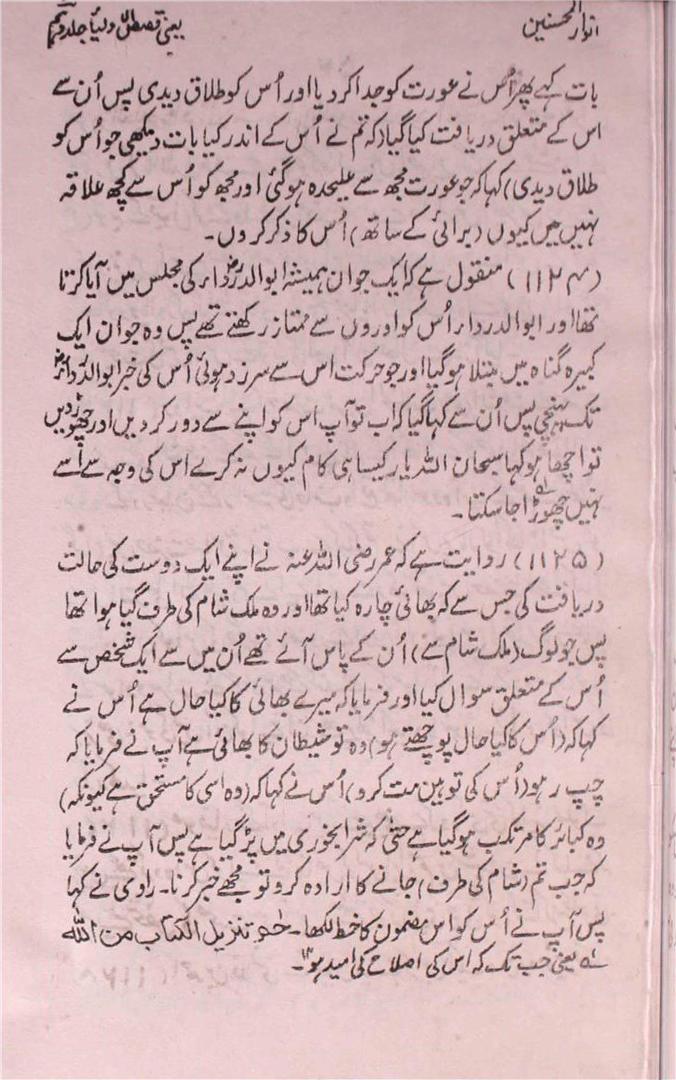 انوار المحسنین
یعنی قصص الاولیا جلد
بات کہے پھر اُس نے عورت کو جدا کر دیا اور اُس کو طلاق دیدی پس اُن سے
اس کے متعلق دریافت کیا گیا (کہ تم نے اُس کے اندر کیا بات دیکھی جو اُس کو
طلاق دیدی) کہا کہ جو عورت مجھ سے علیحدہ ہو گئی اور مجھ کو اُس سے کچھ علاقہ
نہیں میں کیوں (برائی کے ساتھ) اُس کا ذکر کروں۔
(۱۱۲۴) منقول ہے کہ ایک جوان ہمیشہ ابوالدرداءؓ کی مجلس میں آیا کرتا
تھا اور ابوالدرداء اُس کو اوروں سے ممتاز رکھتے تھے پس وہ جوان ایک
کبیرہ گناہ میں مبتلا ہو گیا اور جو حرکت اس سے سرزد ہوئی اُس کی خبر ابوالدرداءؓ
تک پہنچی پس اُن سے کہا گیا کہ اب تو آپ اس کو اپنے سے دور کر دیں اور چھوڑ دیں
تو اچھا ہو کہا سبحان اللہ یار کیسا ہی کام کیوں نہ کرے اس کی وجہ سے اُسے
نہیں چھوڑا جا سکتا۔
(۱۱۲۵) روایت ہے کہ عمر رضی اللہ عنہ نے اپنے ایک دوست کی حالت
دریافت کی جس سے کہ بھائی چارہ کیا تھا اور وہ ملک شام کی طرف گیا ہوا تھا
پس جو لوگ (ملک شام سے) اُن کے پاس آئے تھے اُن میں سے ایک شخص سے
اُس کے متعلق سوال کیا اور فرمایا کہ میرے بھائی کا کیا حال ہے اُس نے
کہا کہ (اُس کا کیا حال پوچھتے ہو) وہ تو شیطان کا بھائی ہے آپ نے فرمایا کہ
چپ رہو (اُس کی توہین مت کرو) اُس نے کہا کہ (وہ اسی کا مستحق ہے کیونکہ)
وہ کبائر کا مرتکب ہو گیا ہے حتیٰ کہ شرابخوری میں پڑ گیا ہے پس آپ نے فرمایا
کہ جب تم (شام کی طرف) جانے کا ارادہ کرو تو مجھے خبر کرنا۔ راوی نے کہا
پس آپ نے اُس کو اس مضمون کا خط لکھا۔ حٰم تنزیل الکتاب من اللہ
ــه یعنی جب تک کہ اس کی اصلاح کی امید ہو ۱۲۔